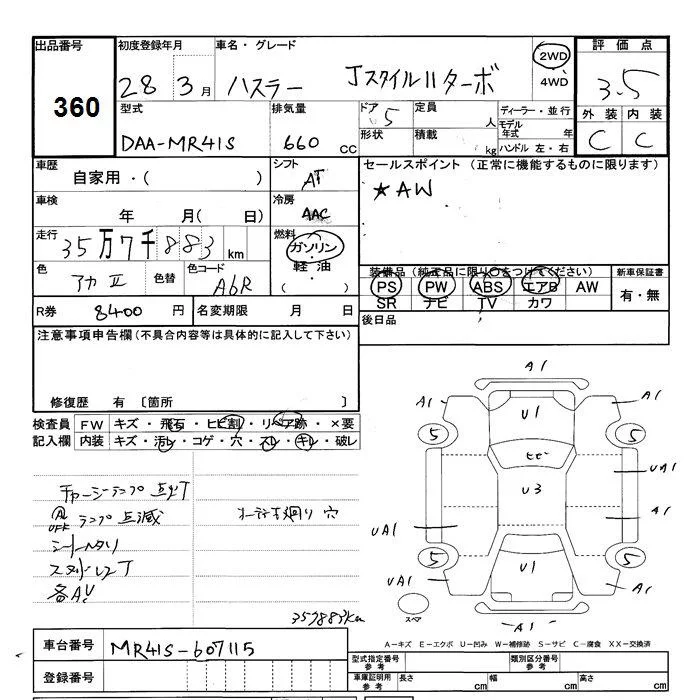 出品番号 初度登録年月 車名・グレード 評価点
360 28 3月 ハスラー JスタイルIIターボ 2WD 4WD 3.5
型式 排気量 ドア 定員 ディーラー・並行 外装 内装
DAA-MR41S 660 CC 5 人 モデル年式 年 C C
形状 積載 kg ハンドル 左・右
車歴 シフト セールスポイント (正常に機能するものに限ります)
自家用・( ) AT ★AW
車検 冷房
年 月( 日) AAC
走行 燃料
35万7千883km ガソリン
色 色替 色コード 軽油 装備品 (純正品に限り○をつけてください) 新車保証書
アカII A6R ( ) PS PW ABS エアB AW 有・無
SR ナビ TV カワ
R券 8400円 名変期限 月 日 後日品
注意事項申告欄(不具合内容等は具体的に記入して下さい)
修復歴 有 〔箇所 〕
検査員 FW キズ・飛石・ヒビ割・リペア跡・×要
記入欄 内装 キズ・汚レ・コゲ・穴・スレ・キレ・破レ
チャージランプ点灯
OFF ランプ点滅 穴
シートヘタリ
357883km
A1
A1 U1 A1
5 5
ヒビ
UA1
U3
A1
UA1
5 5
UA1 U1 A1
A1
スペア
A-キズ E-エクボ U-凹み W-補修跡 S-サビ C-腐食 XX-交換済
車台番号 MR41S-607115
登録番号
型式指定番号 参考 類別区分番号 参考
車庫証明用 参考 長さ cm 幅 cm 高さ cm